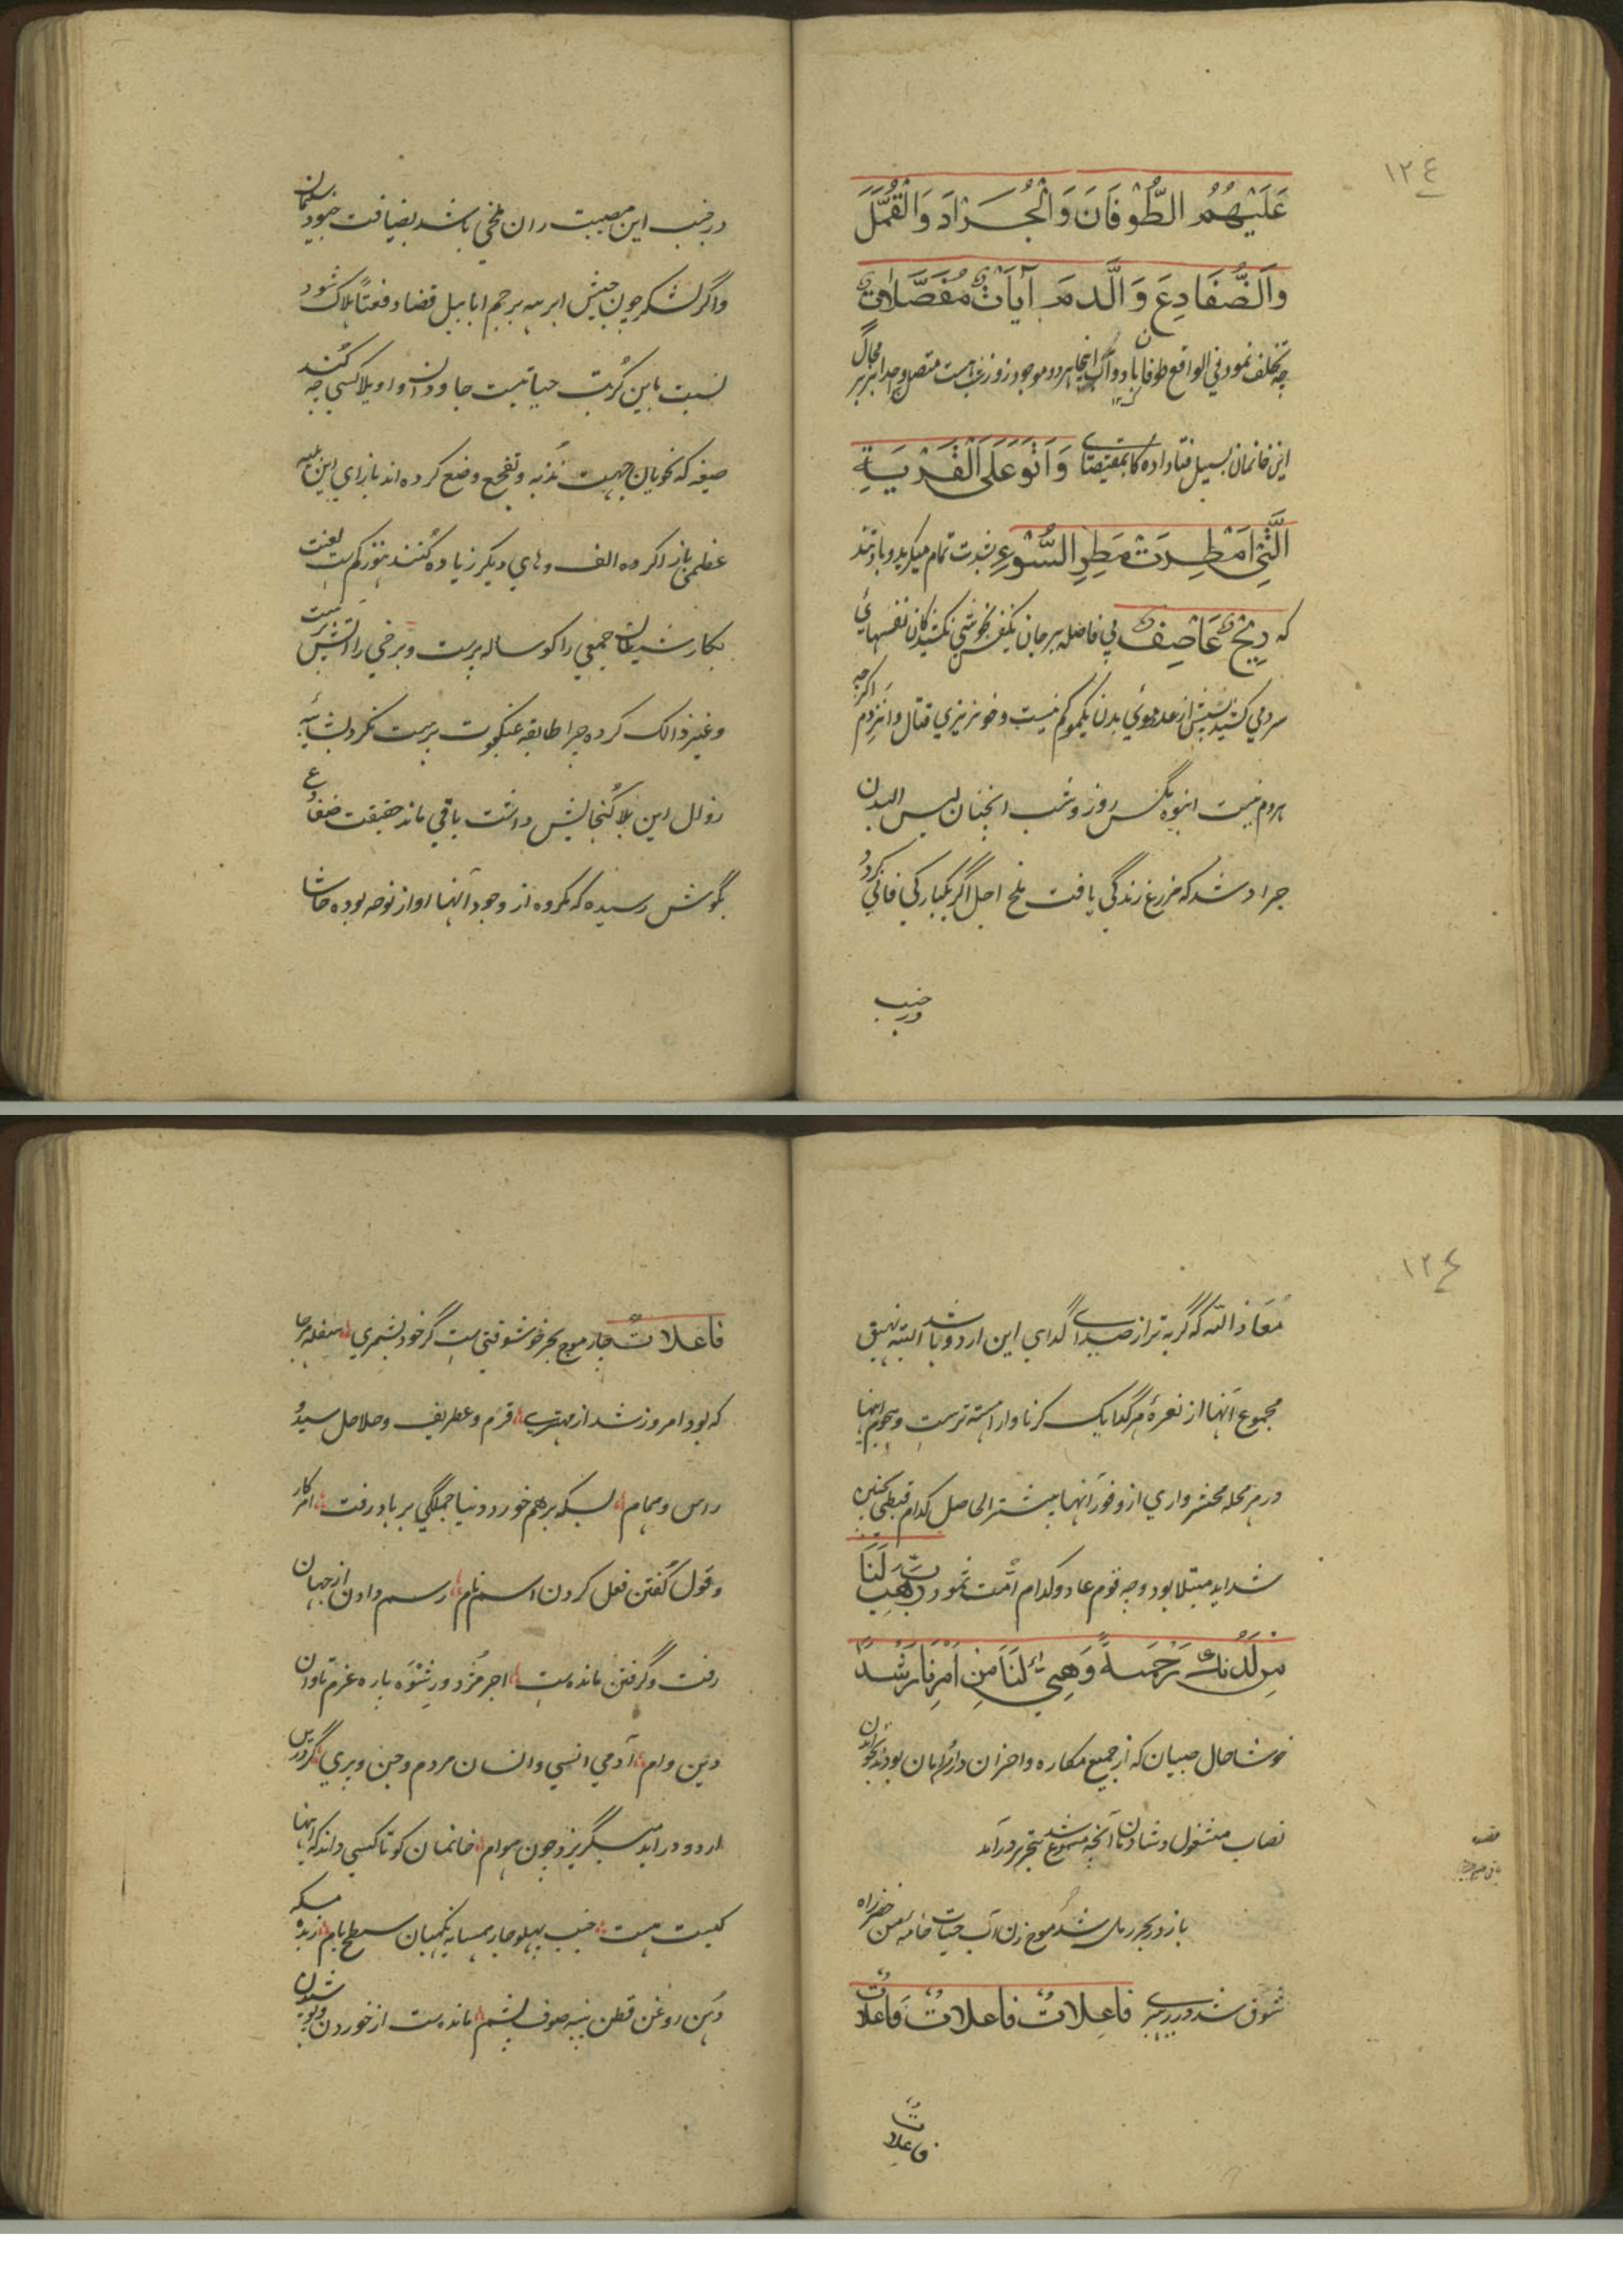 ١٢٤
عَلَيْهِمُ الطُّوفَانَ وَالْجَرَادَ وَالْقُمَّلَ
وَالضَّفَادِعَ وَالدَّمَ آيَاتٍ مُفَصَّلَاتٍ
چه تخلف نمود في الواقع طوفان باد و آب اینجا هر دو موجود
این خانمان بسیل فنا داده کانمقتضای وَاَتَوْ عَلَى الْقَرْيَةِ
الَّتِي اُمْطِرَتْ مَطَرَ السَّوْءِ بشدت تمام میکرید و باد تند
که رِيْحٌ عَاصِفٌ بي فاصله بر جان یکنفس بخوشي نکشیدکان نفسهاي
سرد مي کشد پشش از عدد موئي بدن یکمو کم نیست و خونریزي قتال وانزدم اکرچه
بدوم نیست انبوه مکس روز و شب انچنان لیس البدن
جراد شد که مزرع زندگي یافت ملخ اجل اگر یکبارکي فاني کرد
در جنب
در جنب این مصیبت ران ملخي باشد بضیافت جنود سلیمان
واگر لشکر چون جیش ابرهه برجم ابابیل قضا دفعتاً هلاک شود
نسبت باین کربت حیاتیست جاودان وا ویلا کسي چه کند
صیغه که نحویان جهت ندبه و تفجع وضع کرده اند بازاي این بلیه
عظمی باز اکر ده الف و هاي دیکر زیاده کنند هنوز کم ست لعنت
بکار شیطان جمعي را کوساله پرست و برخي را آتش پرست
وغیر ذالک کرده چرا طایفه عنکبوت پرست نکرد بشایبه
زوال این بلا گنجایش داشت باقي ماند حقیقت ضفادع
بگوش رسیده که مکروه از وجود آنها اواز نوحه بوده حاشا
١٢٤
مَعَاذ الله که گریه تر از صداي گداي این اردو باشد البته نهیق
مجموع آنها از نعرهٔ هر گدا یک کرنا وار آهسته ترست و هجوم اینها
در هر محله محشر واري از وفور آنها بیشتر الحاصل کدام قبطي بچنین
شداید مبتلا بود و چه قوم عاد و کدام امت ثمود رَبِّ هَبْ لَنَا
مِن لَدُنكَ رَحْمَةً وَهَيِّئْ لَنَا مِنْ اَمْرِنَا رَشَدًا
خوشا حال صبیان که از جمیع مکاره و احزان در امان بودند بخواندن
نصاب مشغول و شادمان آنچه مسموع شد بتحریر درآمد
باز در بحر رمل شد موج زن آب حیات خامه بمن خضر راه
شوق شد در رهبري فَاعِلاتُ فاعلاتُ فاعلاتُ
فاعلاتُ
فاعلاتٌ چار موج بحر خوشوقتي ست گر خود بشمري سفله هر جا
که بود امروز شد از مهتري قرم و غطریف و حلاحل سید و
راس و همام بسکه برهم خورد دنیا جملگي بر باد رفت امر کار
و قول گفتن فعل کردن اسم نام رسم دادن از جهان
رفت و گرفتن مانده ست اجر مزد و رشوه پاره غرم تاوان
دین وام آدمي انسي و انسان مردم و جن و پري گر درین
اردو در اید میگریزد چون هوام خانمان کو تا کسي داند که اینها
کیست هست جنب پهلو جار همسایه نگهبان سطح بام زبده مسکه
دهن روغن قطن پنبه صوف پشم مانده ست از خوردن و پوشیدن